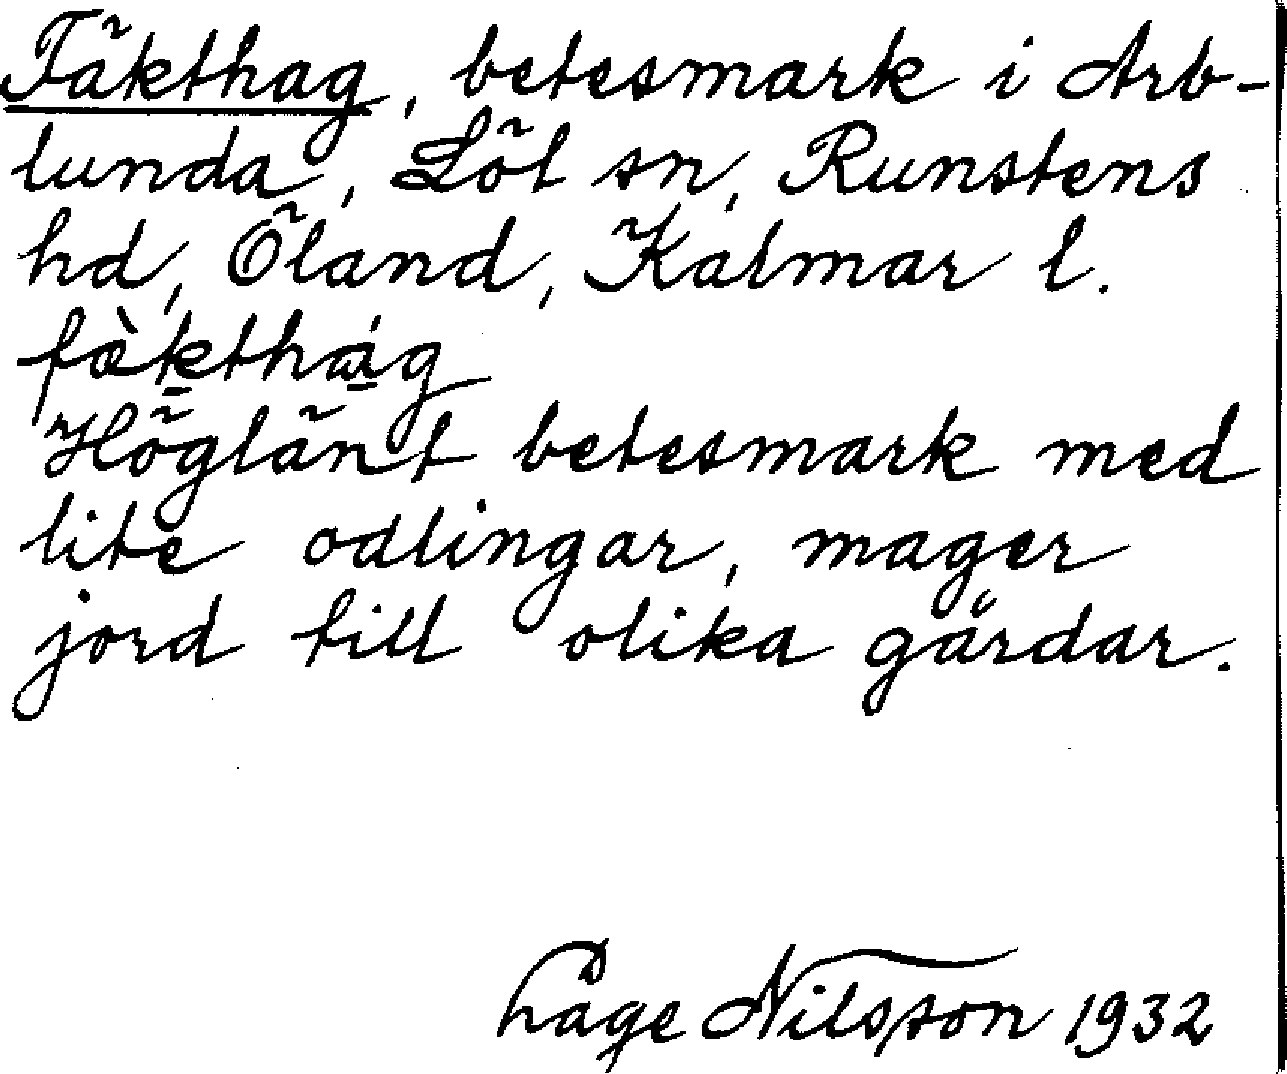 Fäkthag, betesmark i Arb-
lunda, Löt sn, Runstens
hd, Öland, Kalmar l.
fæ̀kthá̲g
Höglänt betesmark med
lite odlingar, mager
jord till olika gårdar.
Nilsson 1932